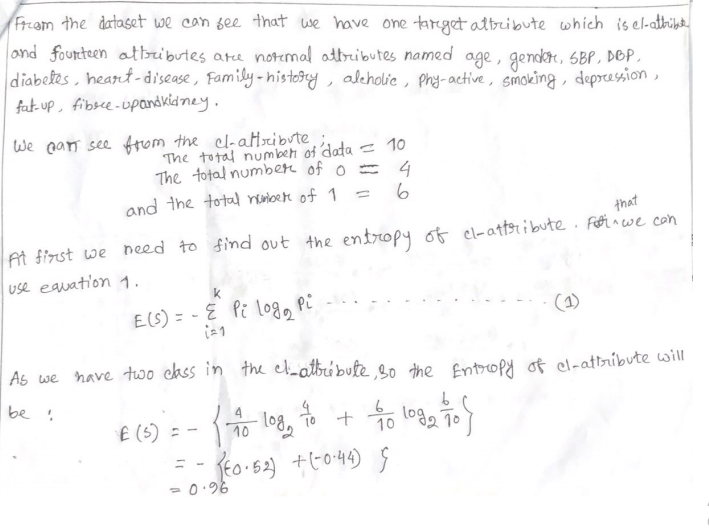 From the dataset we can see that we have one target attribute which is cl-attribute
and fourteen attributes are normal attributes named age, gender, SBP, DBP,
diabetes, heart-disease, family-history, alcholic, phy-active, smoking, depression,
fat-up, fibre-upandkidney.
We can see from the cl-attribute:
The total number of data = 10
The total number of 0 = 4
and the total number of 1 = 6
At first we need to find out the entropy of cl-attribute. For that we can
use equation 1.
E(S) = - Σ_{i=1}^{k} Pi log₂ Pi - - - - - - - - - - - - (1)
As we have two class in the cl-attribute, so the Entropy of cl-attribute will
be :
E(S) = - { 4/10 log₂ 4/10 + 6/10 log₂ 6/10 }
= - {(-0.52) + (-0.44) }
= 0.96